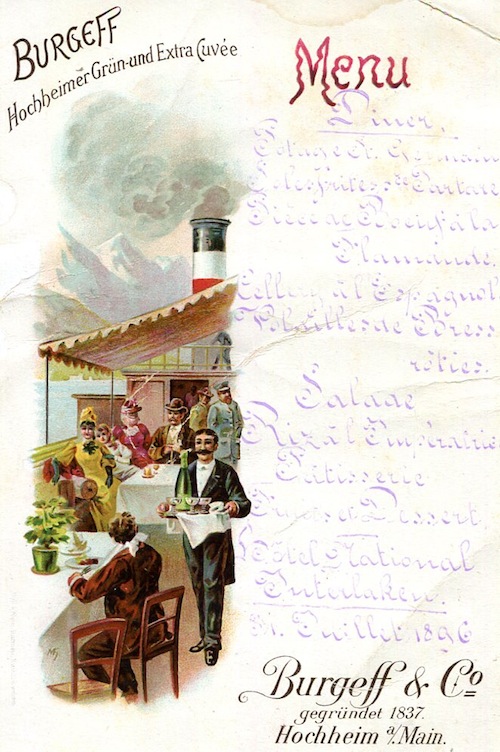 BURGEFF
Hochheimer Grün-und Extra Cuvée
Menu
Diner.
Potage St. Germain
Soles frites s. Tartare
Pièce de Boeuf à la
Flamande.
à l'Espagnol
Volailles de Bress
rôties.
Salade
Riz à l'Impératrice
Pâtisserie
Fruits et Dessert
Hôtel National
Interlaken.
Juillet 1896
Burgeff & Co
gegründet 1837.
Hochheim a/Main.